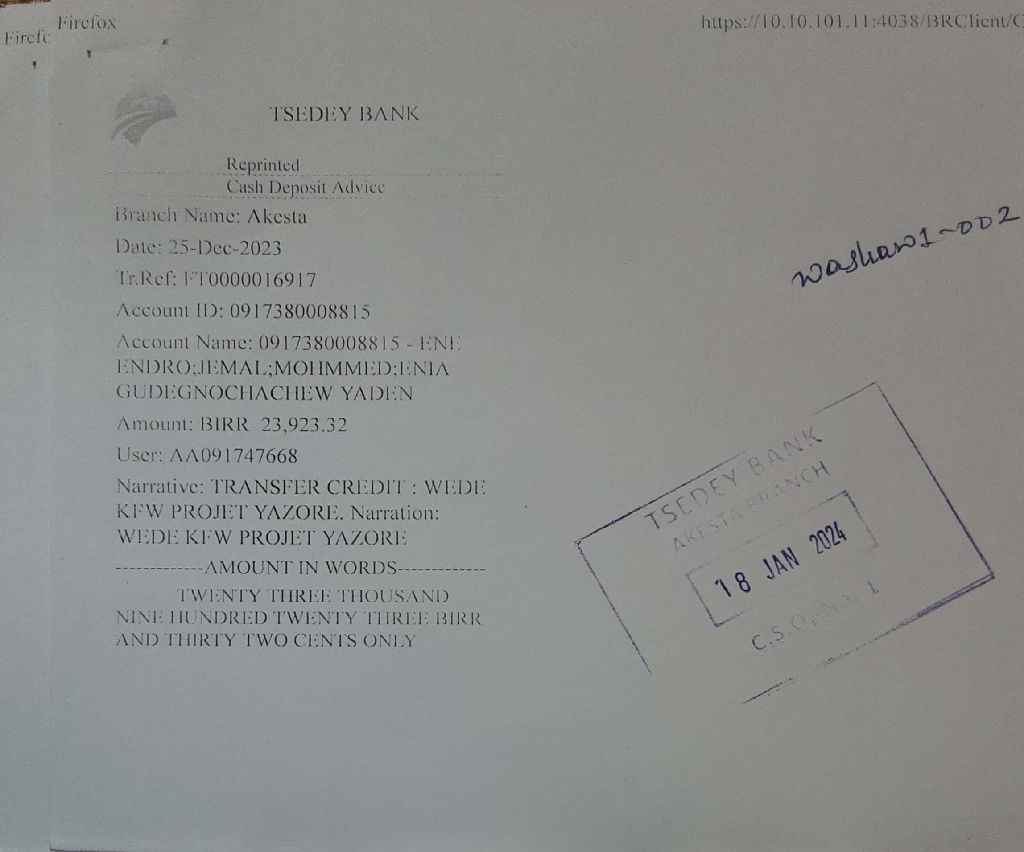 Firefox
Firefc
https://10.10.101.11:4038/BRClient/C
TSEDEY BANK
Reprinted
Cash Deposit Advice
Branch Name: Akesta
Date: 25-Dec-2023
Tr.Ref: FT0000016917
Account ID: 0917380008815
Account Name: 0917380008815 - ENE
ENDRO;JEMAL;MOHMMED;ENIA
GUDEGNOCHACHEW YADEN
Amount: BIRR 23,923.32
User: AA091747668
Narrative: TRANSFER CREDIT : WEDE
KFW PROJET YAZORE. Narration:
WEDE KFW PROJET YAZORE
------------AMOUNT IN WORDS------------
TWENTY THREE THOUSAND
NINE HUNDRED TWENTY THREE BIRR
AND THIRTY TWO CENTS ONLY
washaw1-002
TSEDEY BANK
AKESTA BRANCH
18 JAN 2024
C.S.O. No. 1